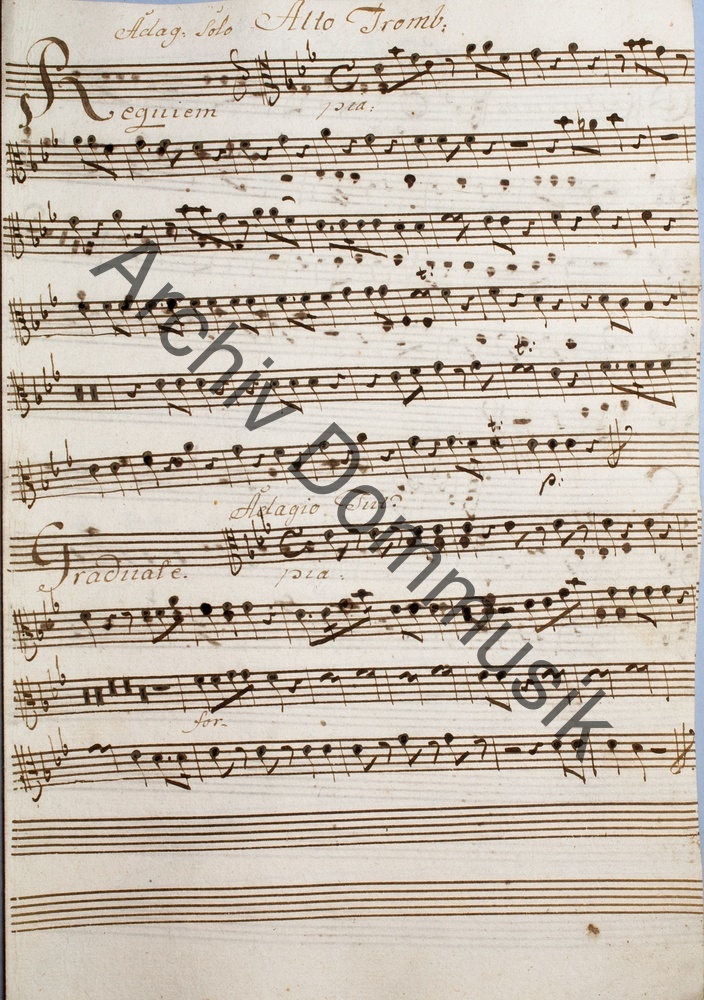 Adag: Solo Alto Tromb:
Requiem pia:
p:
Adagio Tutti
Graduale. pia:
for:
Archiv Dommusik